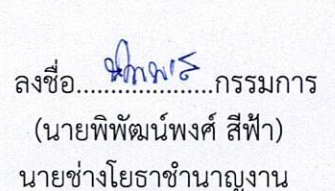 ลงชื่อ....................กรรมการ
(นายพิพัฒน์พงศ์ สีฟ้า)
นายช่างโยธาชำนาญงาน